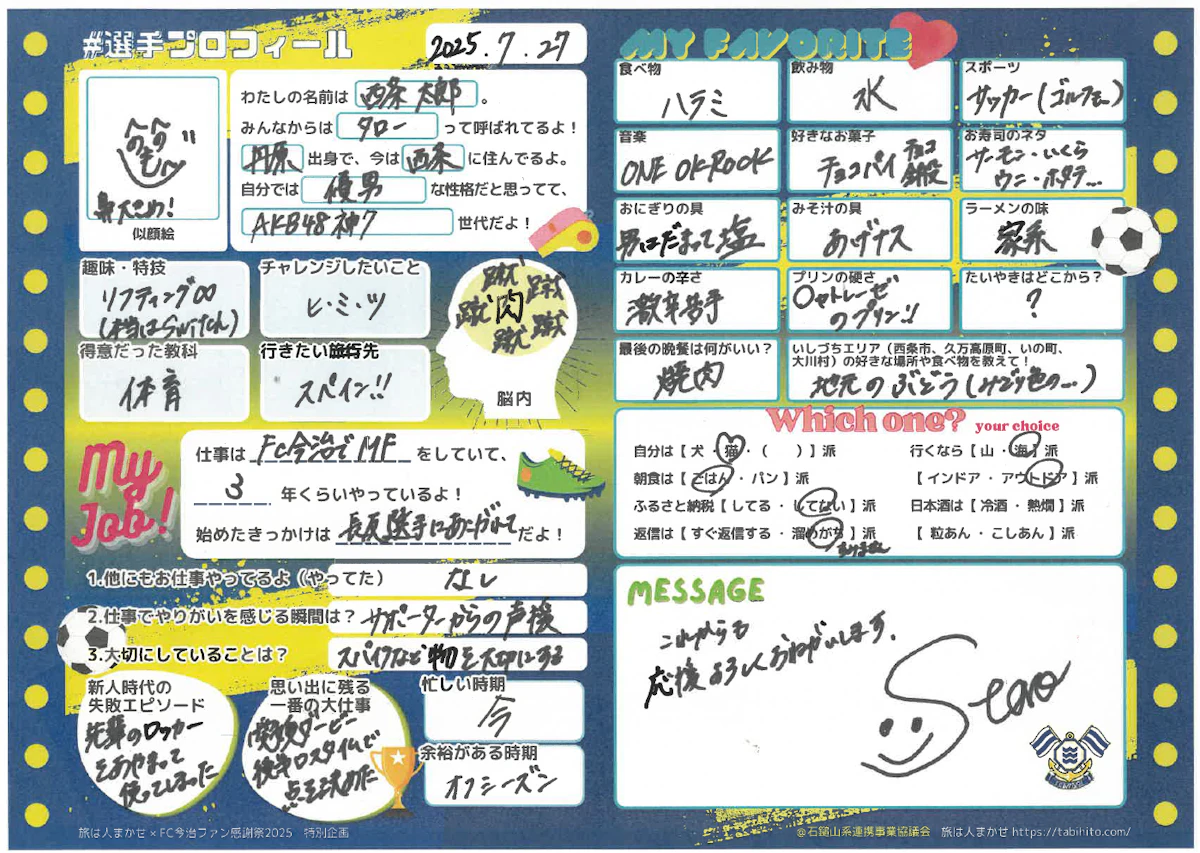 #選手プロフィール
2025.7.27
わたしの名前は 西条 太郎 。
みんなからは タロー って呼ばれてるよ！
丹原 出身で、今は 西条 に住んでるよ。
自分では 優男 な性格だと思ってて、
AKB48 神7 世代だよ！
鼻大きめ！
似顔絵
趣味・特技
リフティング∞
(本当はSwitch)
チャレンジしたいこと
ヒ・ミ・ツ
得意だった教科
体育
行きたい旅行先
スペイン!!
蹴 蹴 蹴 肉 蹴 蹴
脳内
My Job!
仕事は FC今治でMF をしていて、
3 年くらいやっているよ！
始めたきっかけは 長友選手にあこがれて だよ！
1.他にもお仕事やってるよ（やってた） なし
2.仕事でやりがいを感じる瞬間は？ サポーターからの声援
3.大切にしていることは？ スパイクなど物を大切にする
新人時代の
失敗エピソード
先輩のロッカー
をあやまって
使ってしまった
思い出に残る
一番の大仕事
ダービー
後半ロスタイムで
点を決めた
忙しい時期
今
余裕がある時期
オフシーズン
旅は人まかせ×FC今治ファン感謝祭2025 特別企画
MY FAVORITE
食べ物
ハラミ
飲み物
水
スポーツ
サッカー(ゴルフも〜)
音楽
ONE OK ROCK
好きなお菓子
チョコパイ チョコ
お寿司のネタ
サーモン・いくら
ウニ・ホタテ...
おにぎりの具
男はだまって塩
みそ汁の具
あげナス
ラーメンの味
家系
カレーの辛さ
激辛苦手
プリンの硬さ
○ャトレーゼ
のプリン!!
たいやきはどこから？
?
最後の晩餐は何がいい？
焼肉
いしづちエリア（西条市、久万高原町、いの町、
大川村）の好きな場所や食べ物を教えて！
地元のぶどう(みどり色の...)
Which one? your choice
自分は【 犬 ・ 猫 ・（　　）】派
行くなら【 山 ・ 海 】派
朝食は【 ごはん ・ パン 】派
【 インドア ・ アウトドア 】派
ふるさと納税【 してる ・ してない 】派
日本酒は【 冷酒 ・ 熱燗 】派
返信は【 すぐ返信する ・ 溜めがち 】派
【 粒あん ・ こしあん 】派
MESSAGE
これからも
応援よろしくおねがいします。
＠石鎚山系連携事業協議会 旅は人まかせ https://tabihito.com/